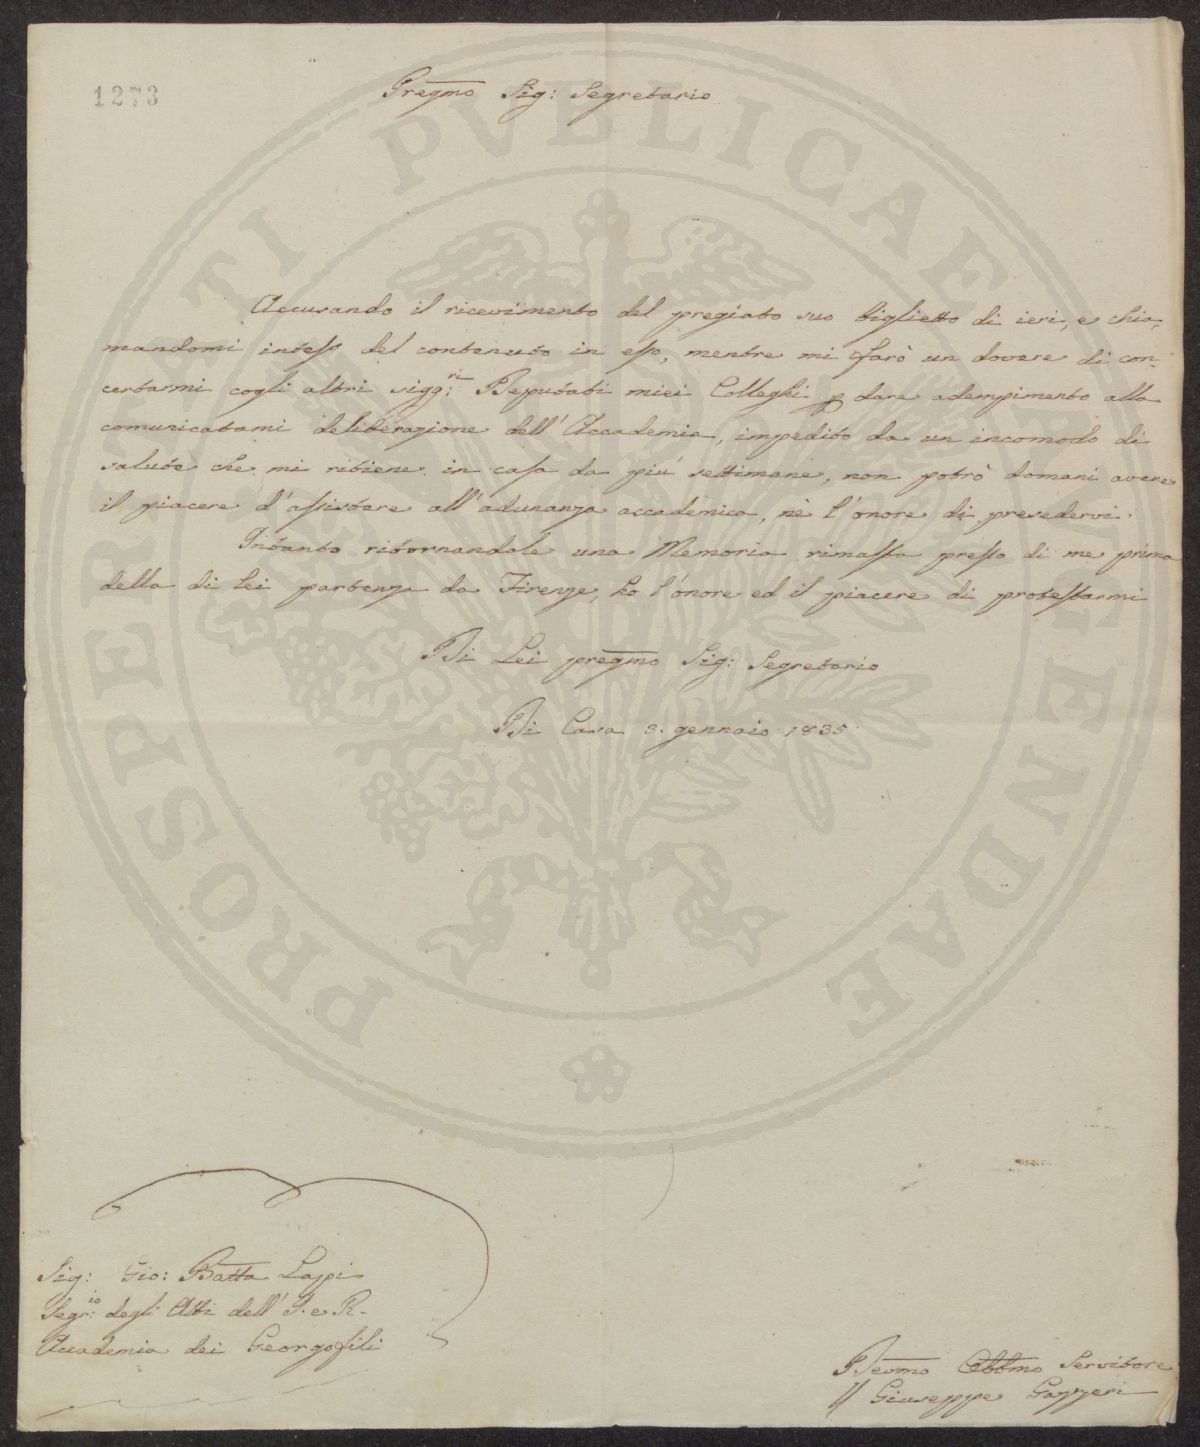 1273
Pregmo Sig: Segretario
Accusando il ricevimento del pregiato suo biglietto di ieri, e chia-
mandomi inteso del contenuto in esso, mentre mi farò un dovere di con-
certarmi cogli altri sigg:ri Deputati miei Colleghi p dare adempimento alla
comunicatami deliberazione dell'Accademia, impedito da un incomodo di
salute che mi ritiene in casa da più settimane, non potrò domani avere
il piacere d'assistere all'adunanza accademica, nè l'onore di presedervi.
Intanto ritornandole una Memoria rimasta presso di me prima
della di Lei partenza da Firenze, ho l'onore ed il piacere di protestarmi
Di Lei pregmo Sig: Segretario
Di Casa 3. gennaio 1835
Sig: Gio: Batta Lapi
Segr:io degli Atti dell'I. e R.
Accademia dei Georgofili
Devmo Obbmo Servitore
Giuseppe Gazzeri
PROSPERITATI PVBLICAE AVGENDAE